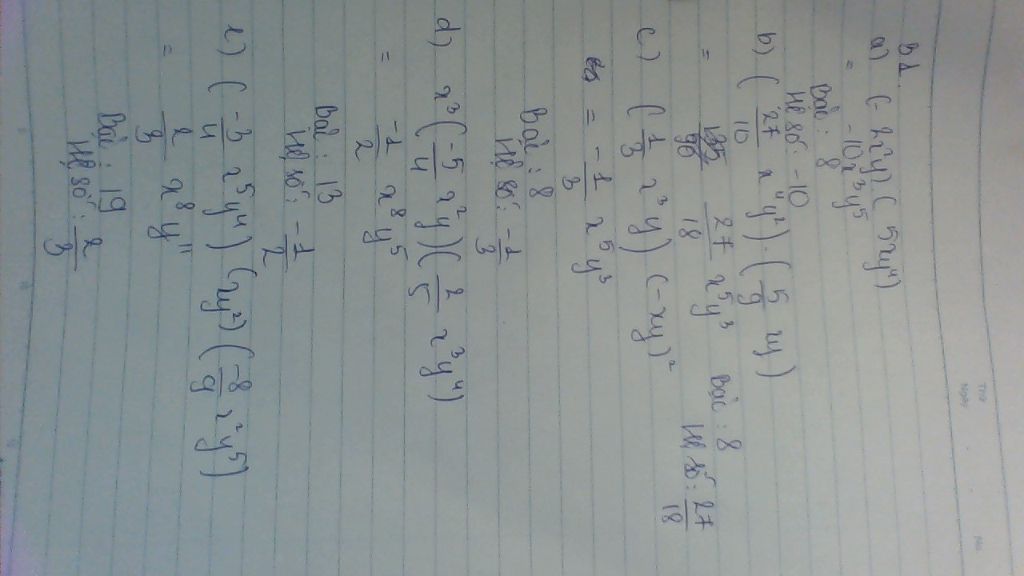 B1
a) (-2x²y)(5xy⁴)
= -10x³y⁵
Bậc : 8
Hệ số : -10
b) (27/10 x⁴y²).(5/9 xy)
= 27/18 x⁵y³ Bậc : 8
Hệ số : 27/18
c) (1/3 x³y)(-xy)²
= -1/3 x⁵y³
Bậc : 8
Hệ số : -1/3
d) x³(-5/4 x²y)(2/5 x³y⁴)
= -1/2 x⁸y⁵
Bậc : 13
Hệ số : -1/2
e) (-3/4 x⁵y⁴)(xy²)(-8/9 x²y⁵)
= 2/3 x⁸y¹¹
Bậc : 19
Hệ số : 2/3